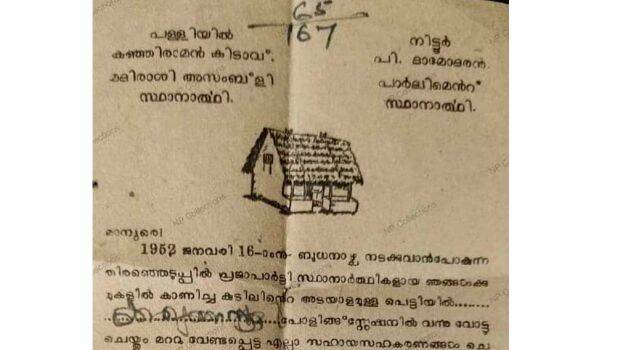 65
167
പള്ളിയിൽ
കുഞ്ഞിരാമൻ കിടാവ്.
മദിരാശി അസംബ്ളി
സ്ഥാനാർത്ഥി.
നിട്ടൂർ
പി. ദാമോദരൻ.
പാർലിമെൻറ്
സ്ഥാനാർത്ഥി.
മാന്യരെ!
1952 ജനവരി 16-ാംനു- ബുധനാഴ്ച നടക്കുവാൻപോകുന്ന
തിരഞ്ഞെടുപ്പിൽ പ്രജാപാർട്ടി സ്ഥാനാർത്ഥികളായ ഞങ്ങൾക്കു
മുകളിൽ കാണിച്ച കുടിലിന്റെ അടയാളമുള്ള പെട്ടിയിൽ........
പോളിങ്ങ് സ്റ്റേഷനിൽ വന്നു വോട്ടു
ചെയ്തും മററു വേണ്ടപ്പെട്ട എല്ലാ സഹായസഹകരണങ്ങളും ചെ
NP Collections